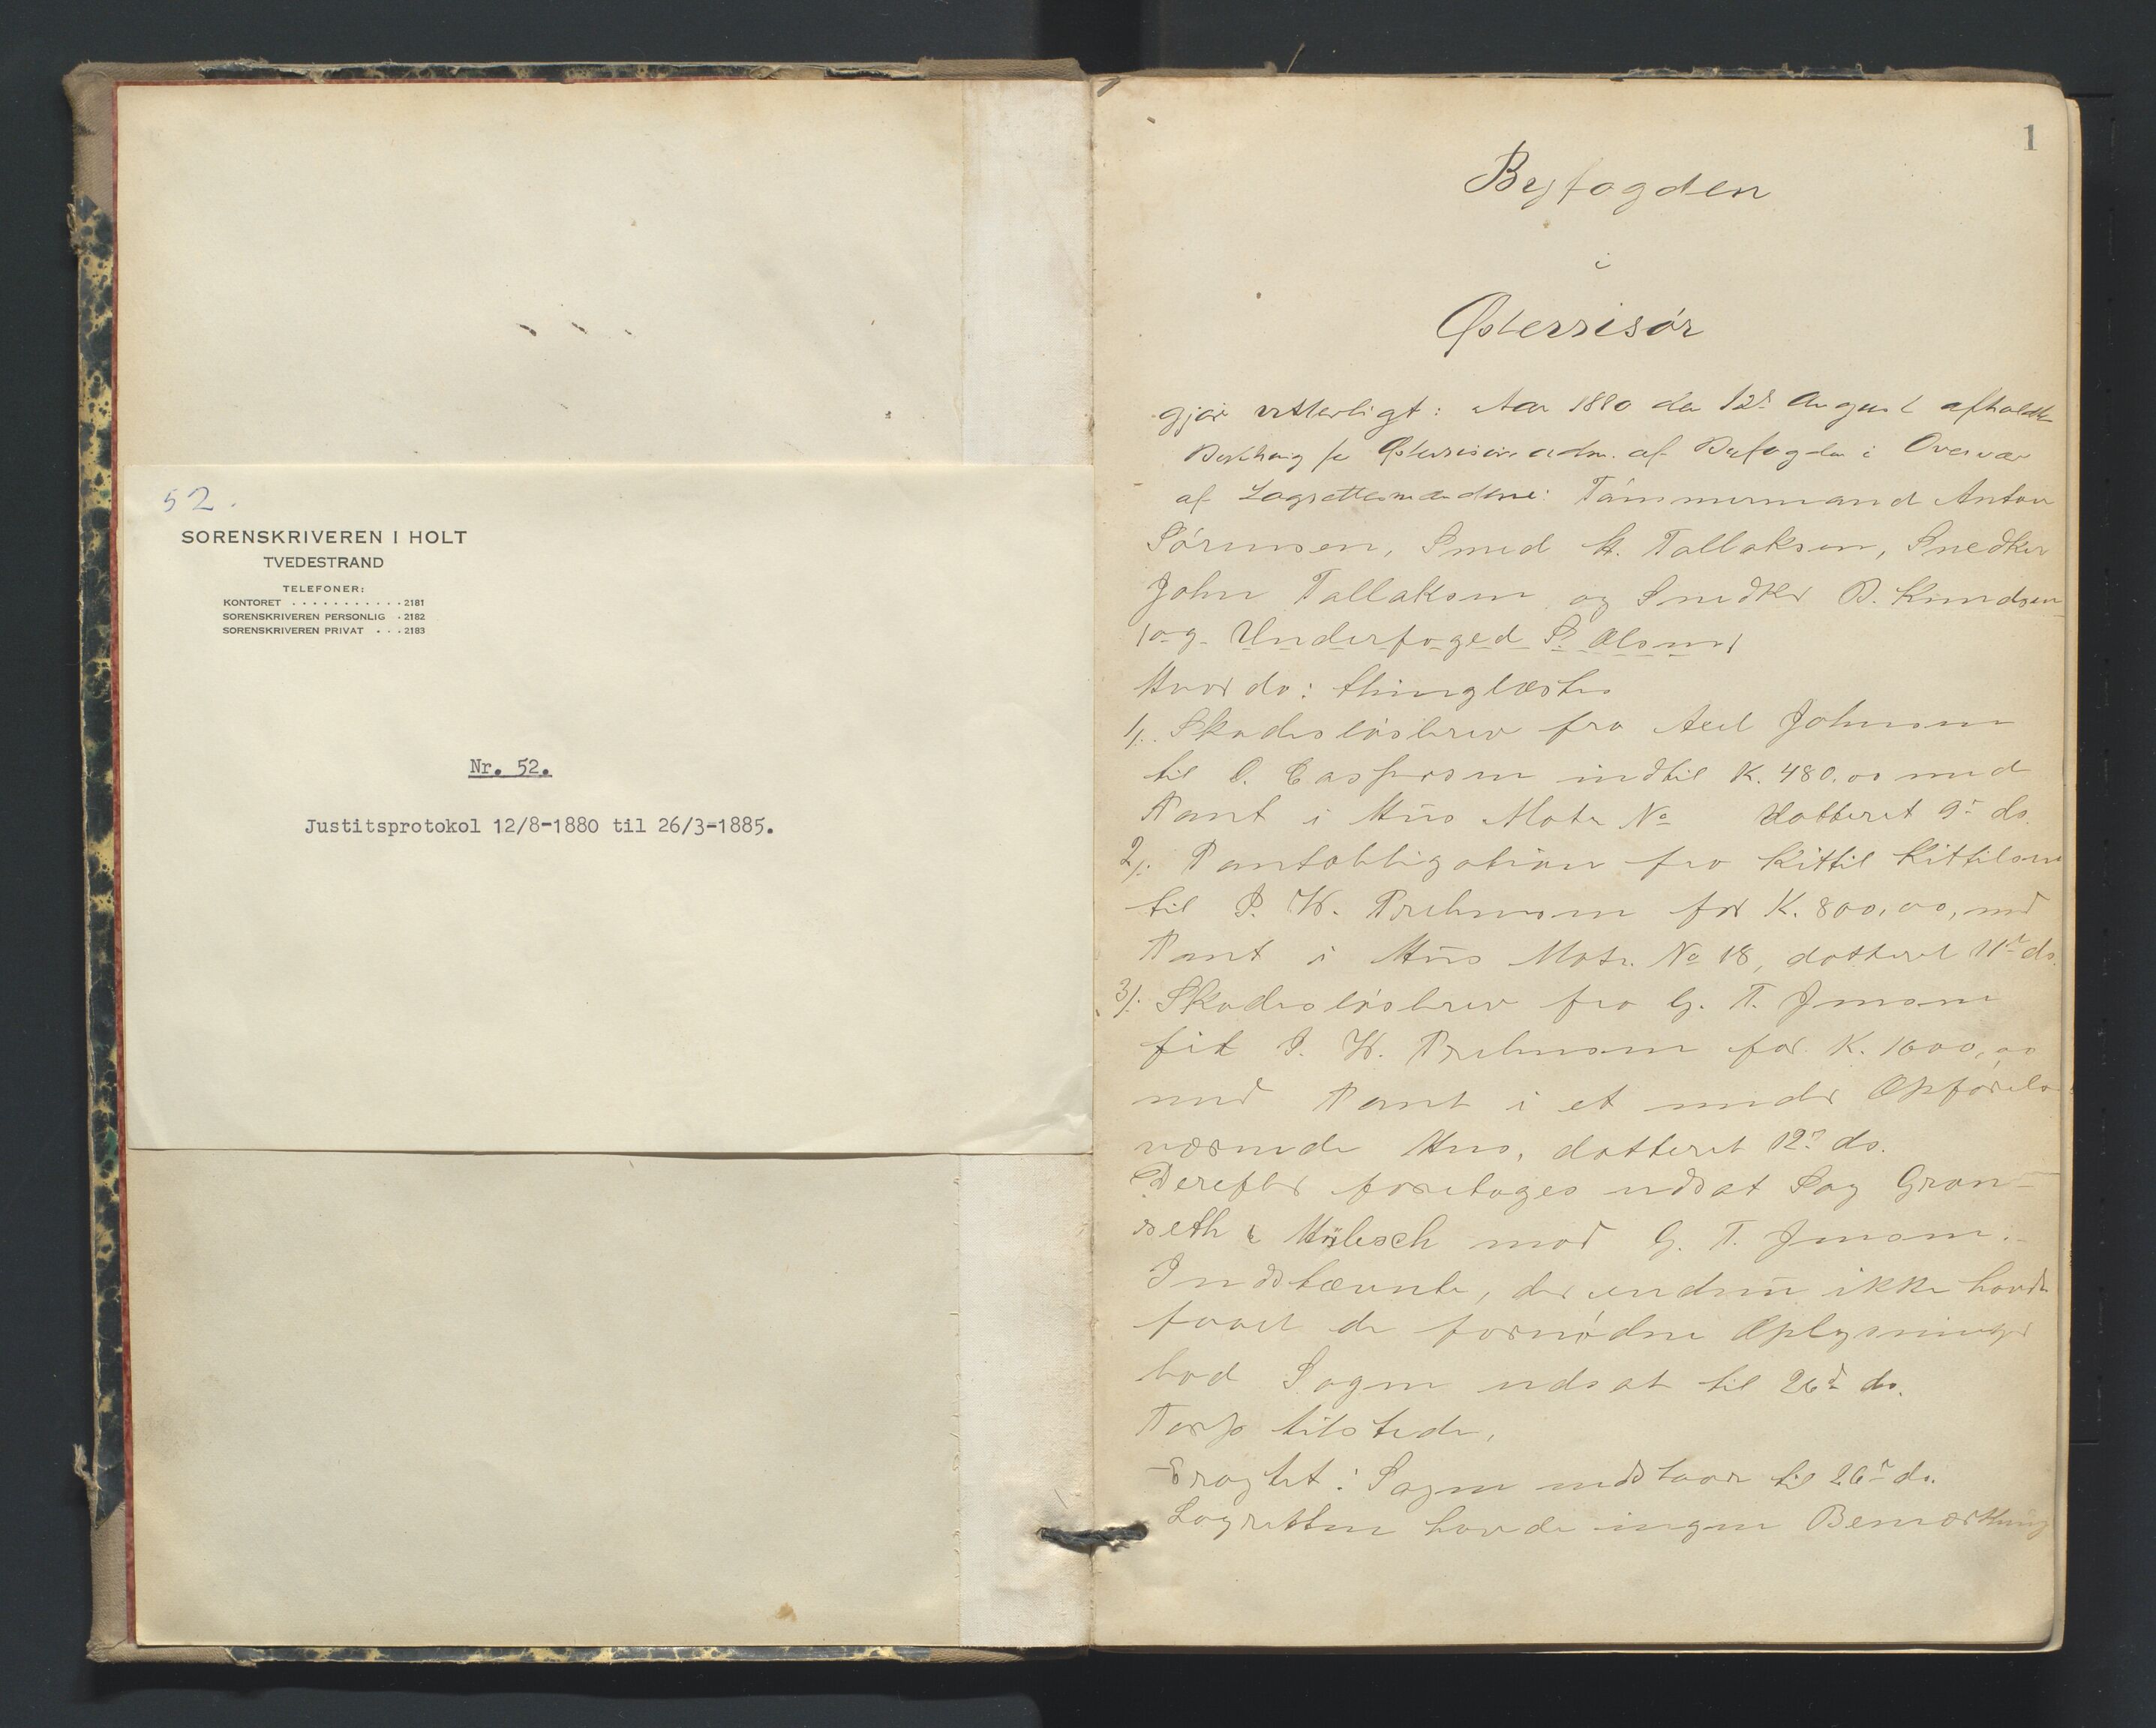 52.
SORENSKRIVEREN I HOLT
TVEDESTRAND
TELEFONER:
KONTORET . . . . . . . . . . . 2181
SORENSKRIVEREN PERSONLIG . 2182
SORENSKRIVEREN PRIVAT . . . 2183
Nr. 52.
Justitsprotokol 12/8-1880 til 26/3-1885.
1
Byfogden
i
Østerrisör
gjör vitterligt: Aar 1880 den 12te August afholdtes
Bything for Østerrisör adm. af Byfogden i Overvær
af Lagrettesmændene: Tömmermand Anton
Sörensen, Smed H. Tallaksen, Snedker
John Tallaksen og Snedker B. Knudsen
(og Underfoged P. Olsen)
Hvorda: thinglæstes
1/. Skadeslösbrev fra Axel Johnsen
til O. Caspersen indtil K. 480.00 med
Pant i Hüs Matr No datteret 9de ds.
2/. Pantobligation fra Kittil Kittilsen
til P. W. for K. 800,00, med
Pant i Hüs Matr. No 18, datteret 11te ds.
3/. Skadeslösbrev fra G. T. Jensen
til P. W. for K. 1600,00
med Pant i et under Opförelse
værende Hus, datteret 12te ds.
Derefter foretoges udsat Sag Gron-
seth & mod G. T. Jensen.
Indstævnte, der endnü ikke havde
faaet de fornödne Oplysninger
bad Sagen udsat til 26de ds.
Torp tilstede.
Eragtet: Sagen udstaar til 26de ds.
Lagretten havde ingen Bemærkning